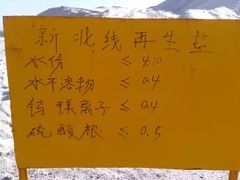 新北线再生盐
水份 ≤ 4.0
水不溶物 ≤ 0.4
钙镁离子 ≤ 0.4
硫酸根 ≤ 0.5